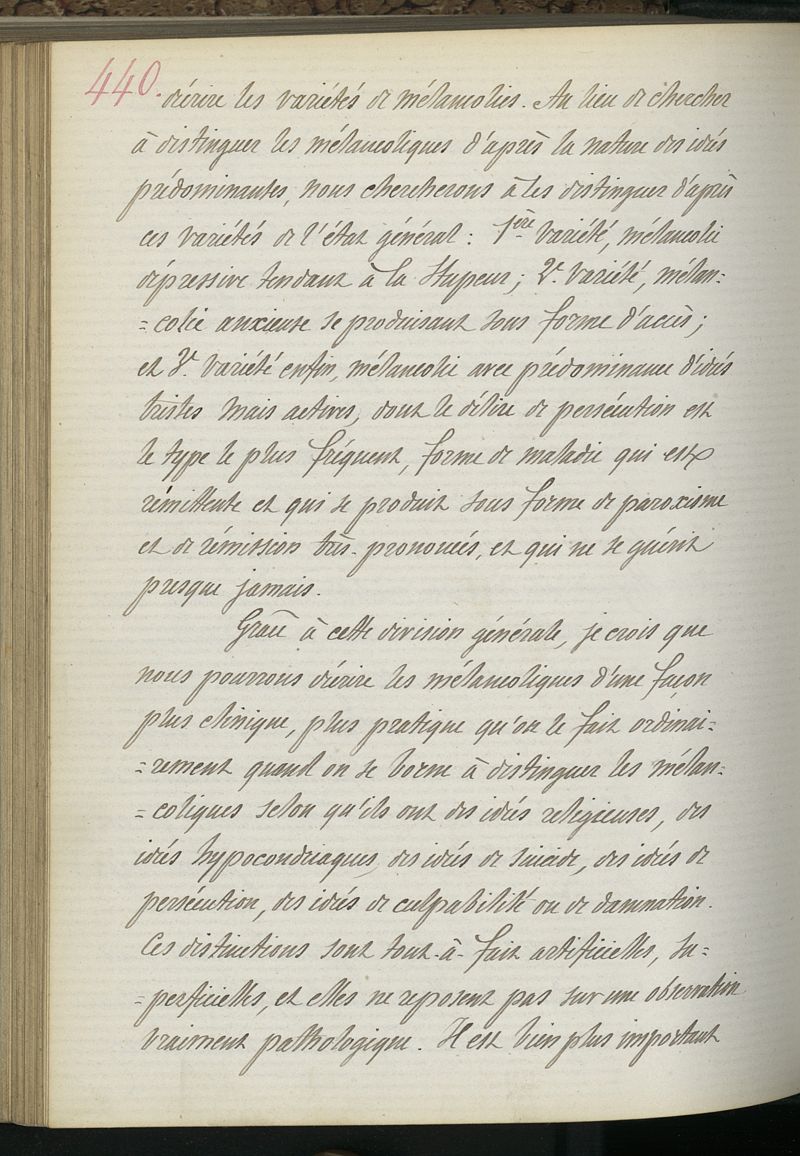 440.
décrire les variétés de mélancolies. Au lieu de chercher
à distinguer les mélancoliques d'après la nature des idées
prédominantes, nous chercherons à les distinguer d'après
ces variétés de l'état général : 1ère variété, mélancolie
dépressive tendant à la stupeur ; 2e. variété, mélan=
=colie anxieuse se produisant sous forme d'accès ;
et 3e. variété enfin, mélancolie avec prédominance d'idées
tristes mais actives, dont le délire de persécution est
le type le plus fréquent, forme de maladie qui est
rémittente et qui se produit sous forme de paroxisme
et de rémission très-prononcés, et qui ne se guérit
presque jamais.
Grâce à cette division générale, je crois que
nous pourrons décrire les mélancoliques d'une façon
plus clinique, plus pratique qu'on le fait ordinai=
=rement quand on se borne à distinguer les mélan=
=coliques selon qu'ils ont des idées religieuses, des
idées hypocondriaques, des idées de suicide, des idées de
persécution, des idées de culpabilité ou de damnation.
Ces distinctions sont tout-à-fait artificielles, su=
=perficielles, et elles ne reposent pas sur une observation
vraiment pathologique. Il est bien plus important